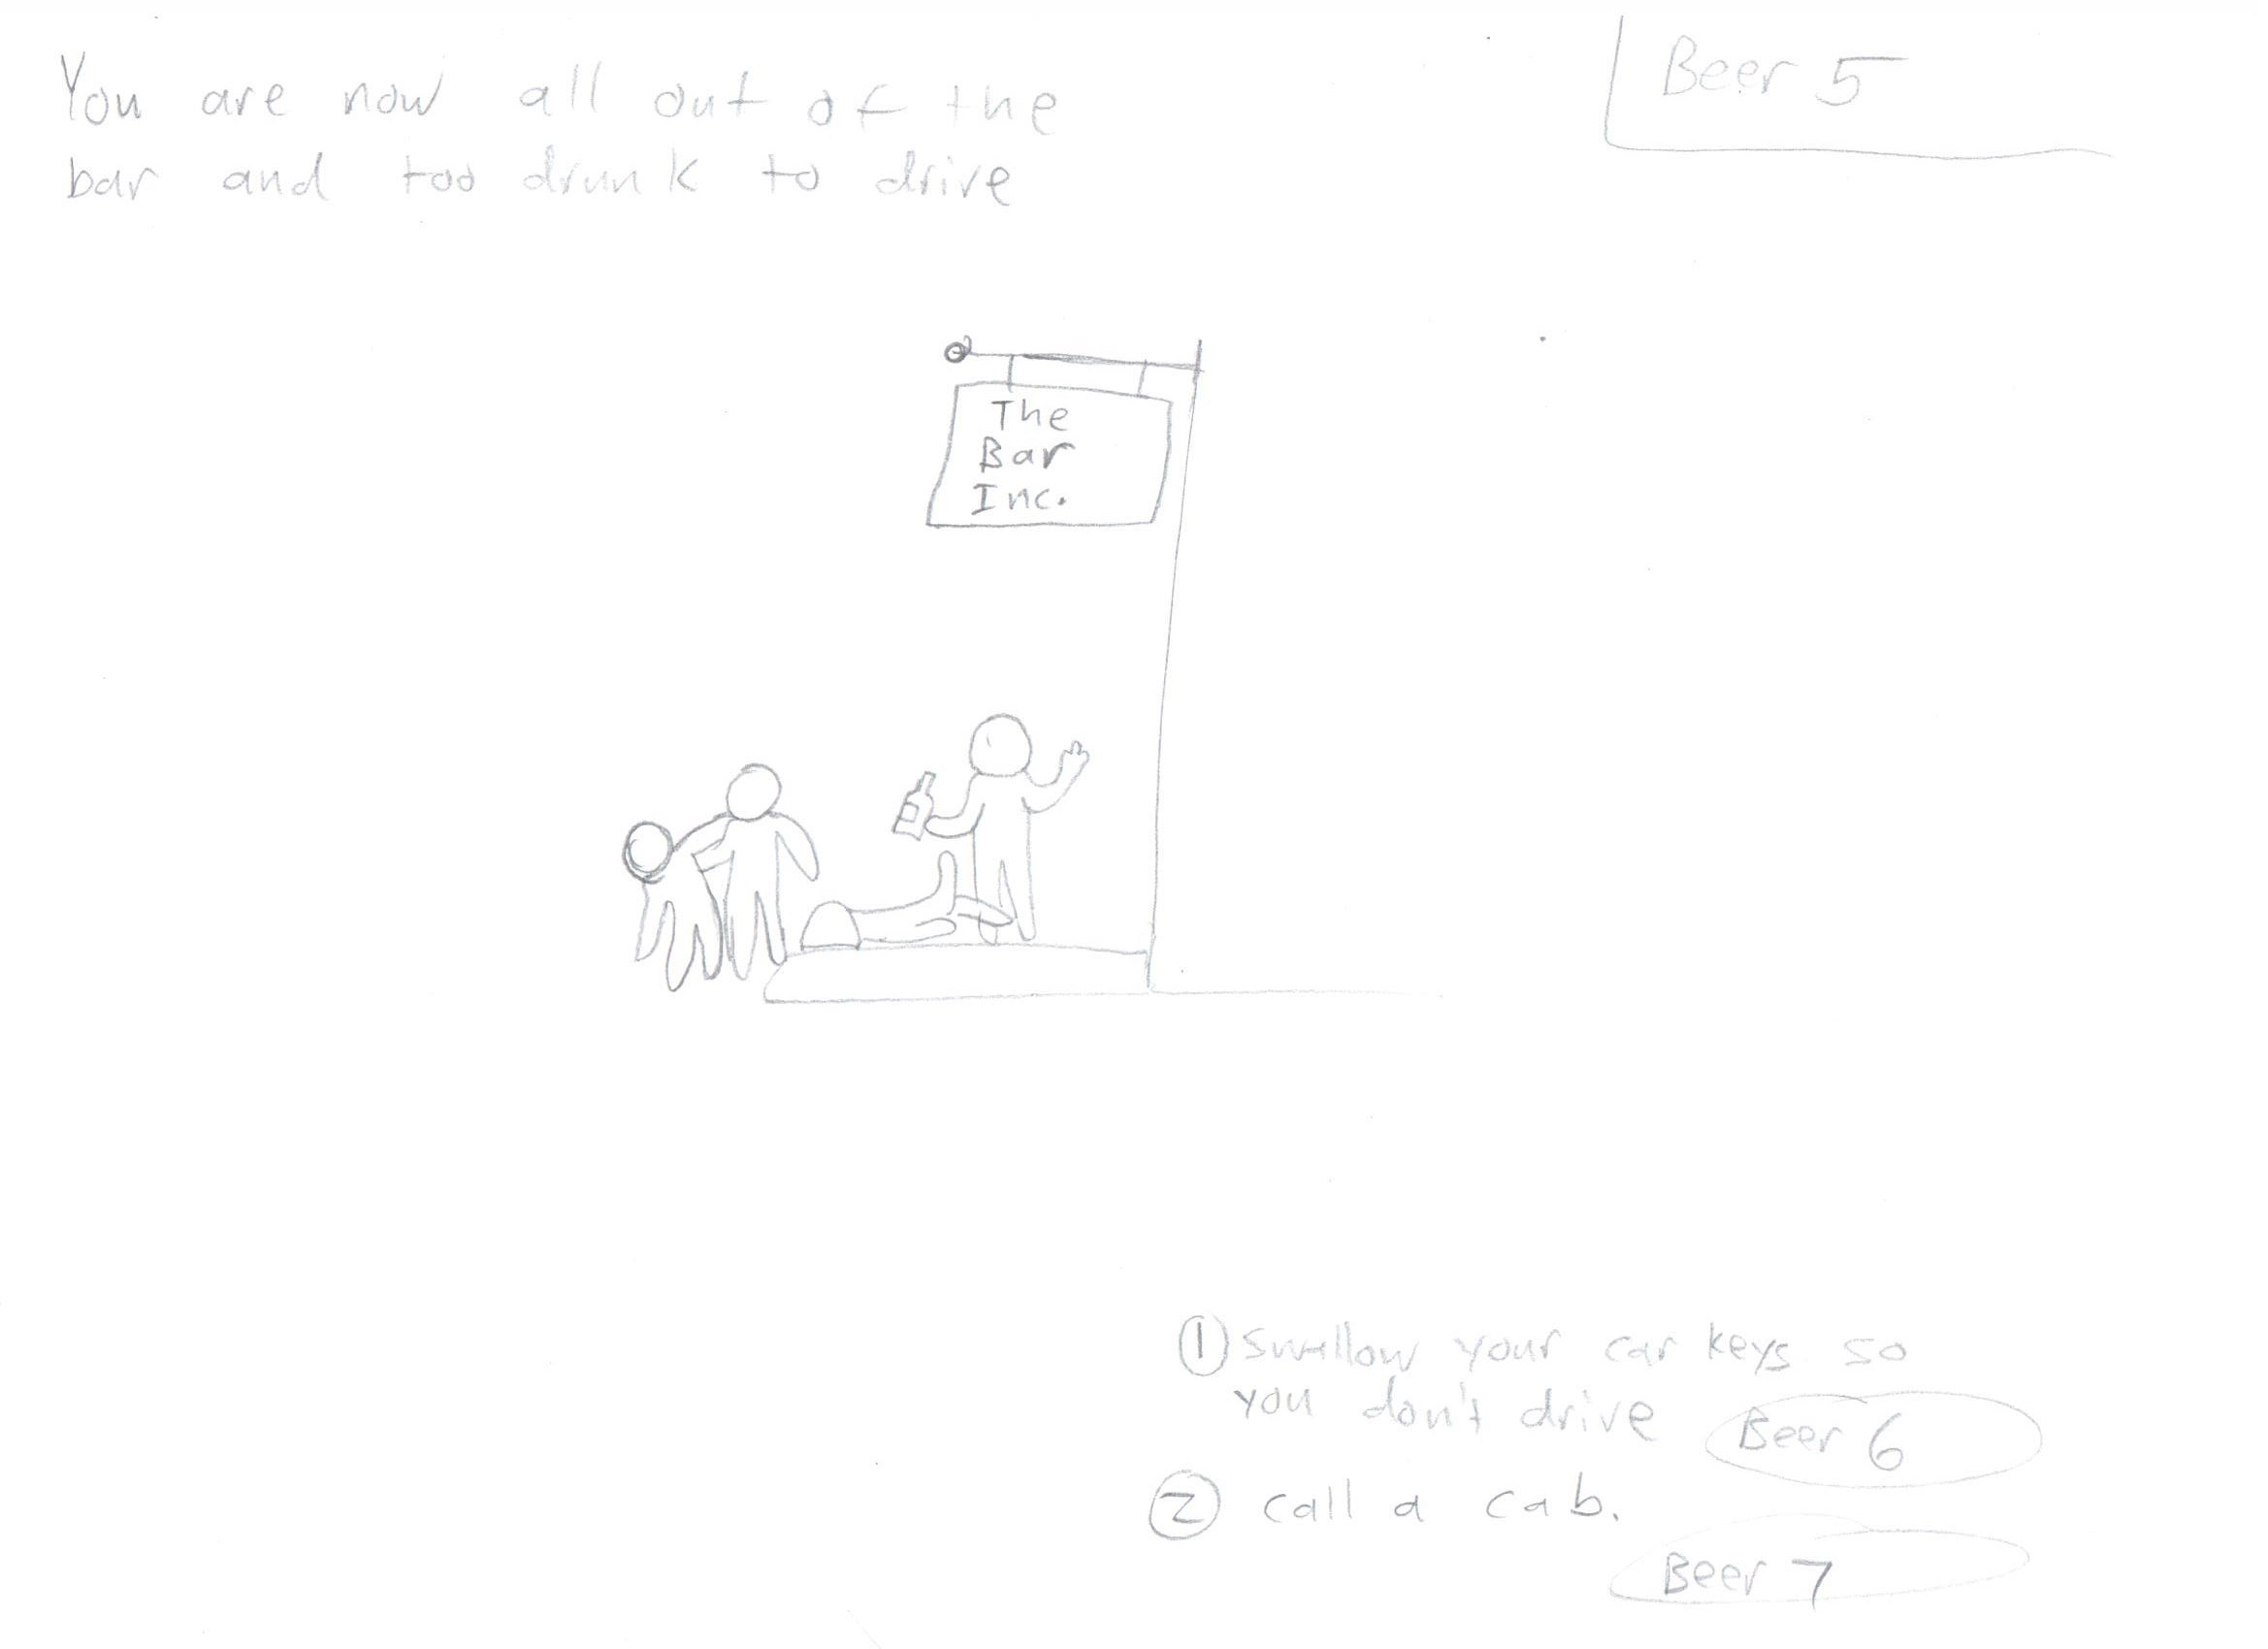 You are now all out of the
Beer 5
bar and too drunk to drive
The
Bar
Inc.
① swallow your car keys so
you don't drive Beer 6
② call a cab.
Beer 7